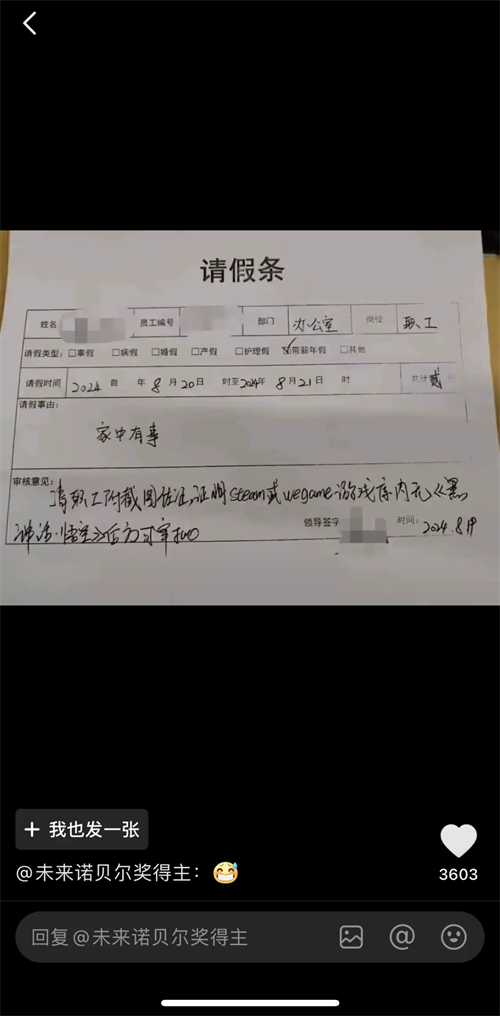 请假条
姓名 员工编号 部门 办公室 岗位 职工
请假类型： □事假 □病假 □婚假 □产假 □护理假 ☑带薪年假 □其他
请假时间 2024 自 年 8 月 20 日 时至 2024年 8 月 21 日 时 共计 贰
请假事由：
家中有事
审核意见：
请职工附截图佐证，证明steam或wegame游戏库内无《黑
神话·悟空》后方可审批
领导签字 时间： 2024.8.19
+ 我也发一张
@未来诺贝尔奖得主：
3603
回复@未来诺贝尔奖得主